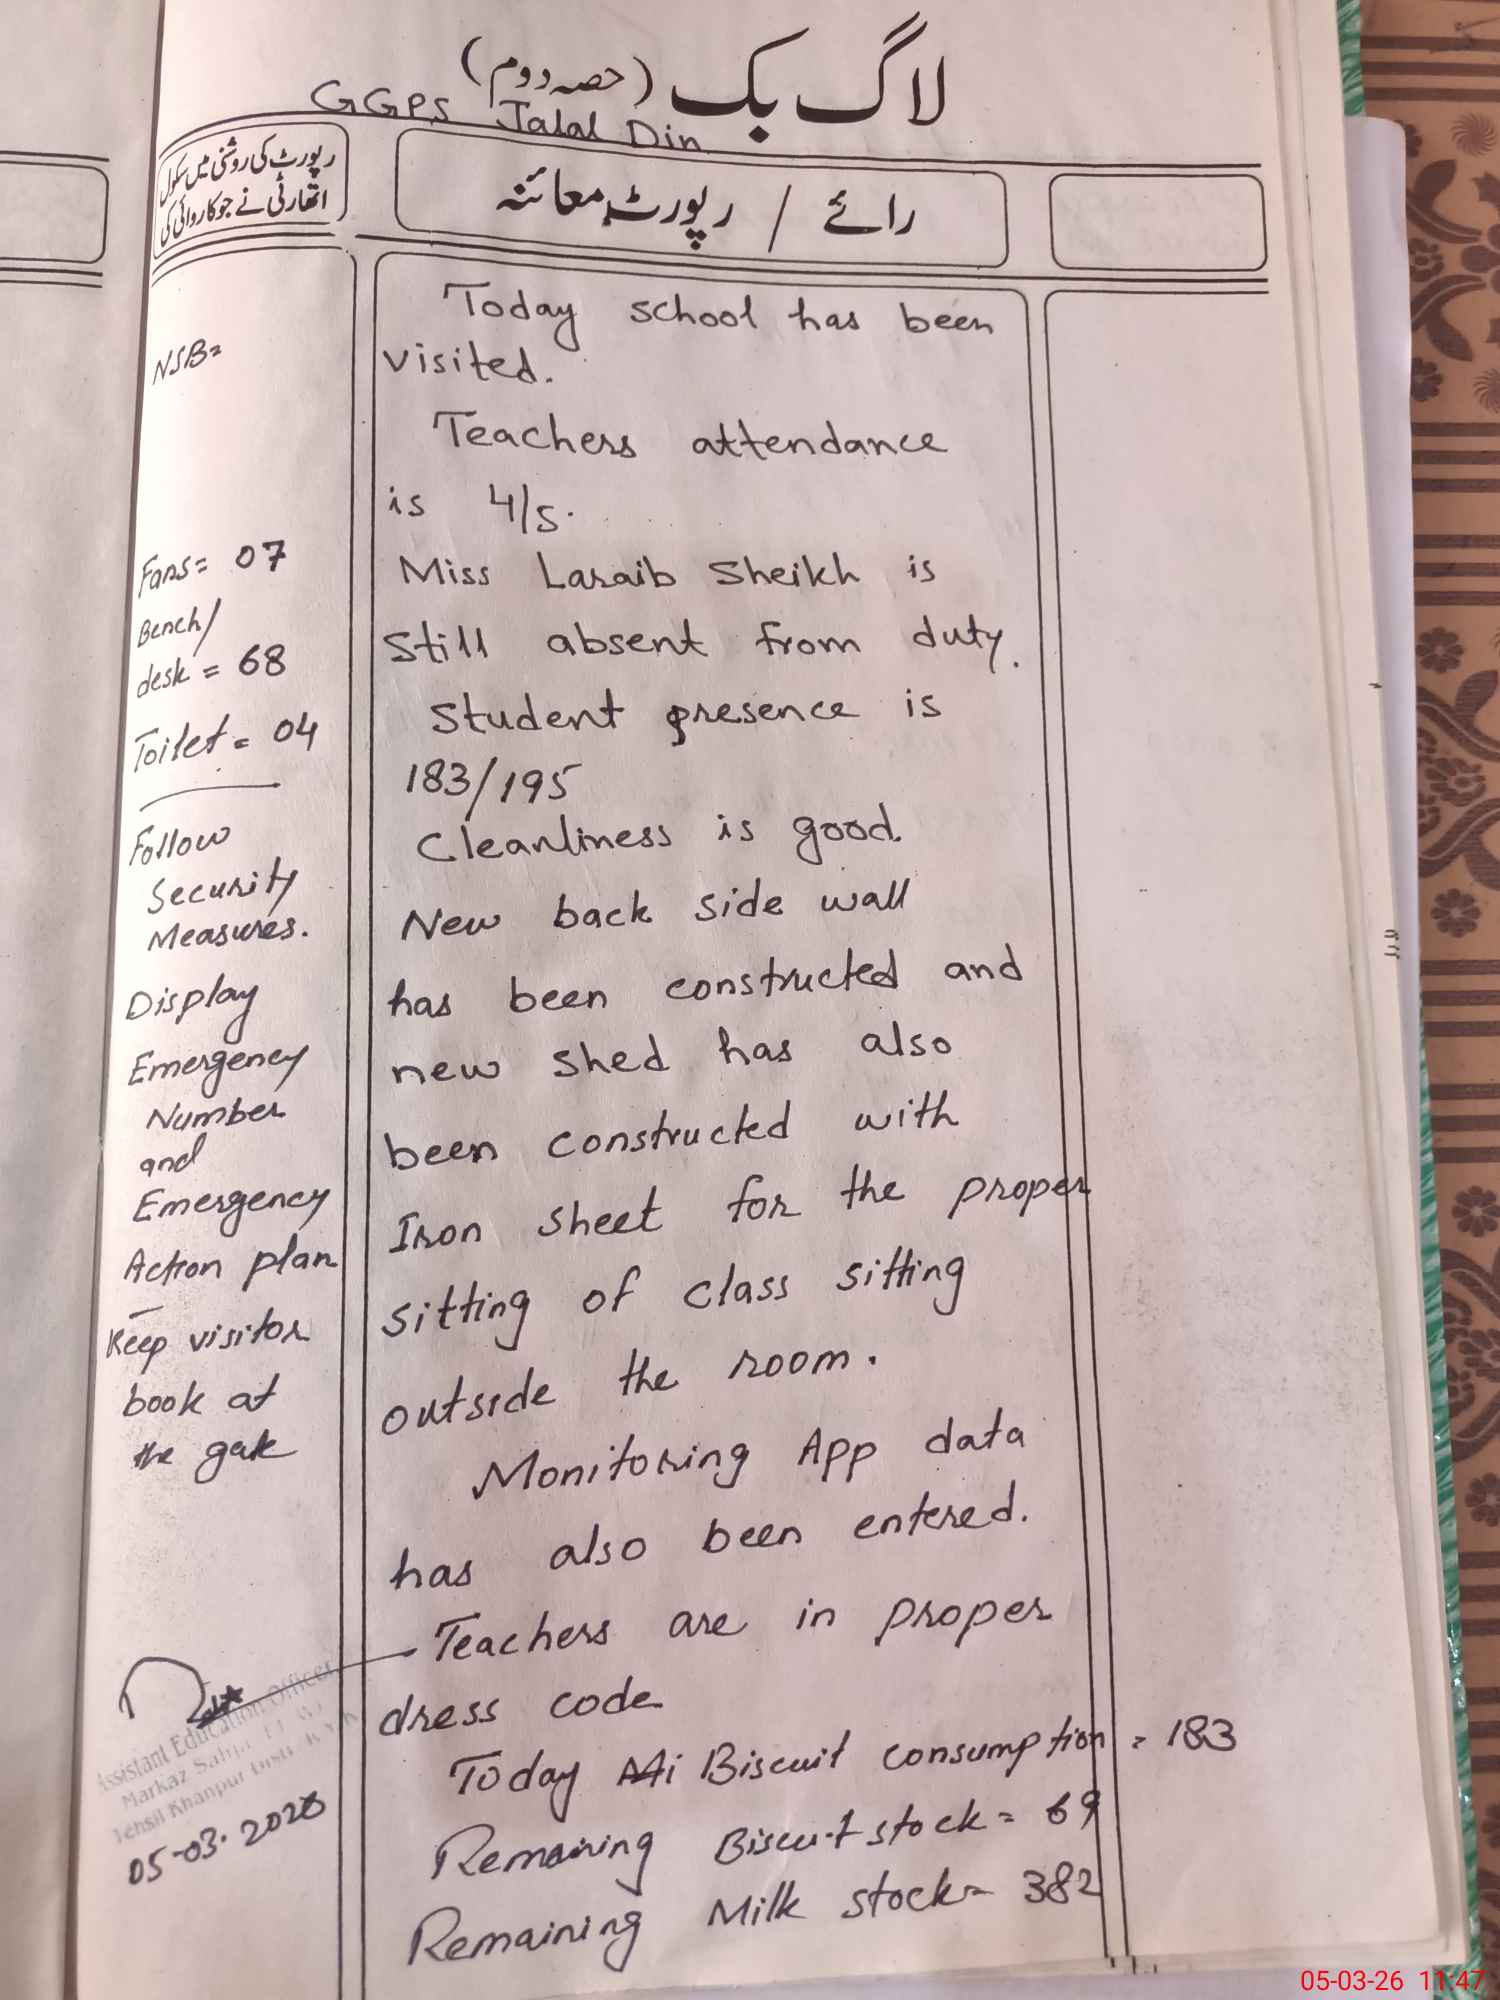 لاگ بک (حصہ دوم)
GGPS Jalal Din
رپورٹ کی روشنی میں سکول
اتھارٹی نے جو کاروائی کی
رائے / رپورٹ معائنہ
NSB=
Fans= 07
Bench/
desk = 68
Toilet = 04
Follow
Security
Measures.
Display
Emergency
Number
and
Emergency
Action plan
Keep visitor
book at
the gate
Assistant Education Officer
Markaz
Tehsil Khanpur Distt. R.Y.K
05-03-2026
Today school has been
visited.
Teachers attendance
is 4/5.
Miss Laraib Sheikh is
still absent from duty.
Student presence is
183/195
Cleanliness is good.
New back side wall
has been constructed and
new shed has also
been constructed with
Iron sheet for the proper
sitting of class sitting
outside the room.
Monitoring App data
has also been entered.
Teachers are in proper
dress code
Today Biscuit consumption = 183
Remaining Biscuit stock = 69
Remaining Milk stock = 382
05-03-26 11:47